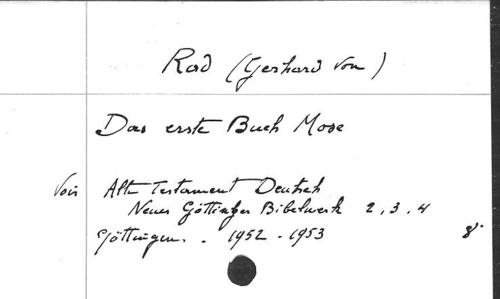 Rad (Gerhard von)
Das erste Buch Mose
Voir Alte Testament Deutsch
Neues Göttinger Bibelwerk 2, 3, 4
Göttingen. . 1952 - 1953 8°